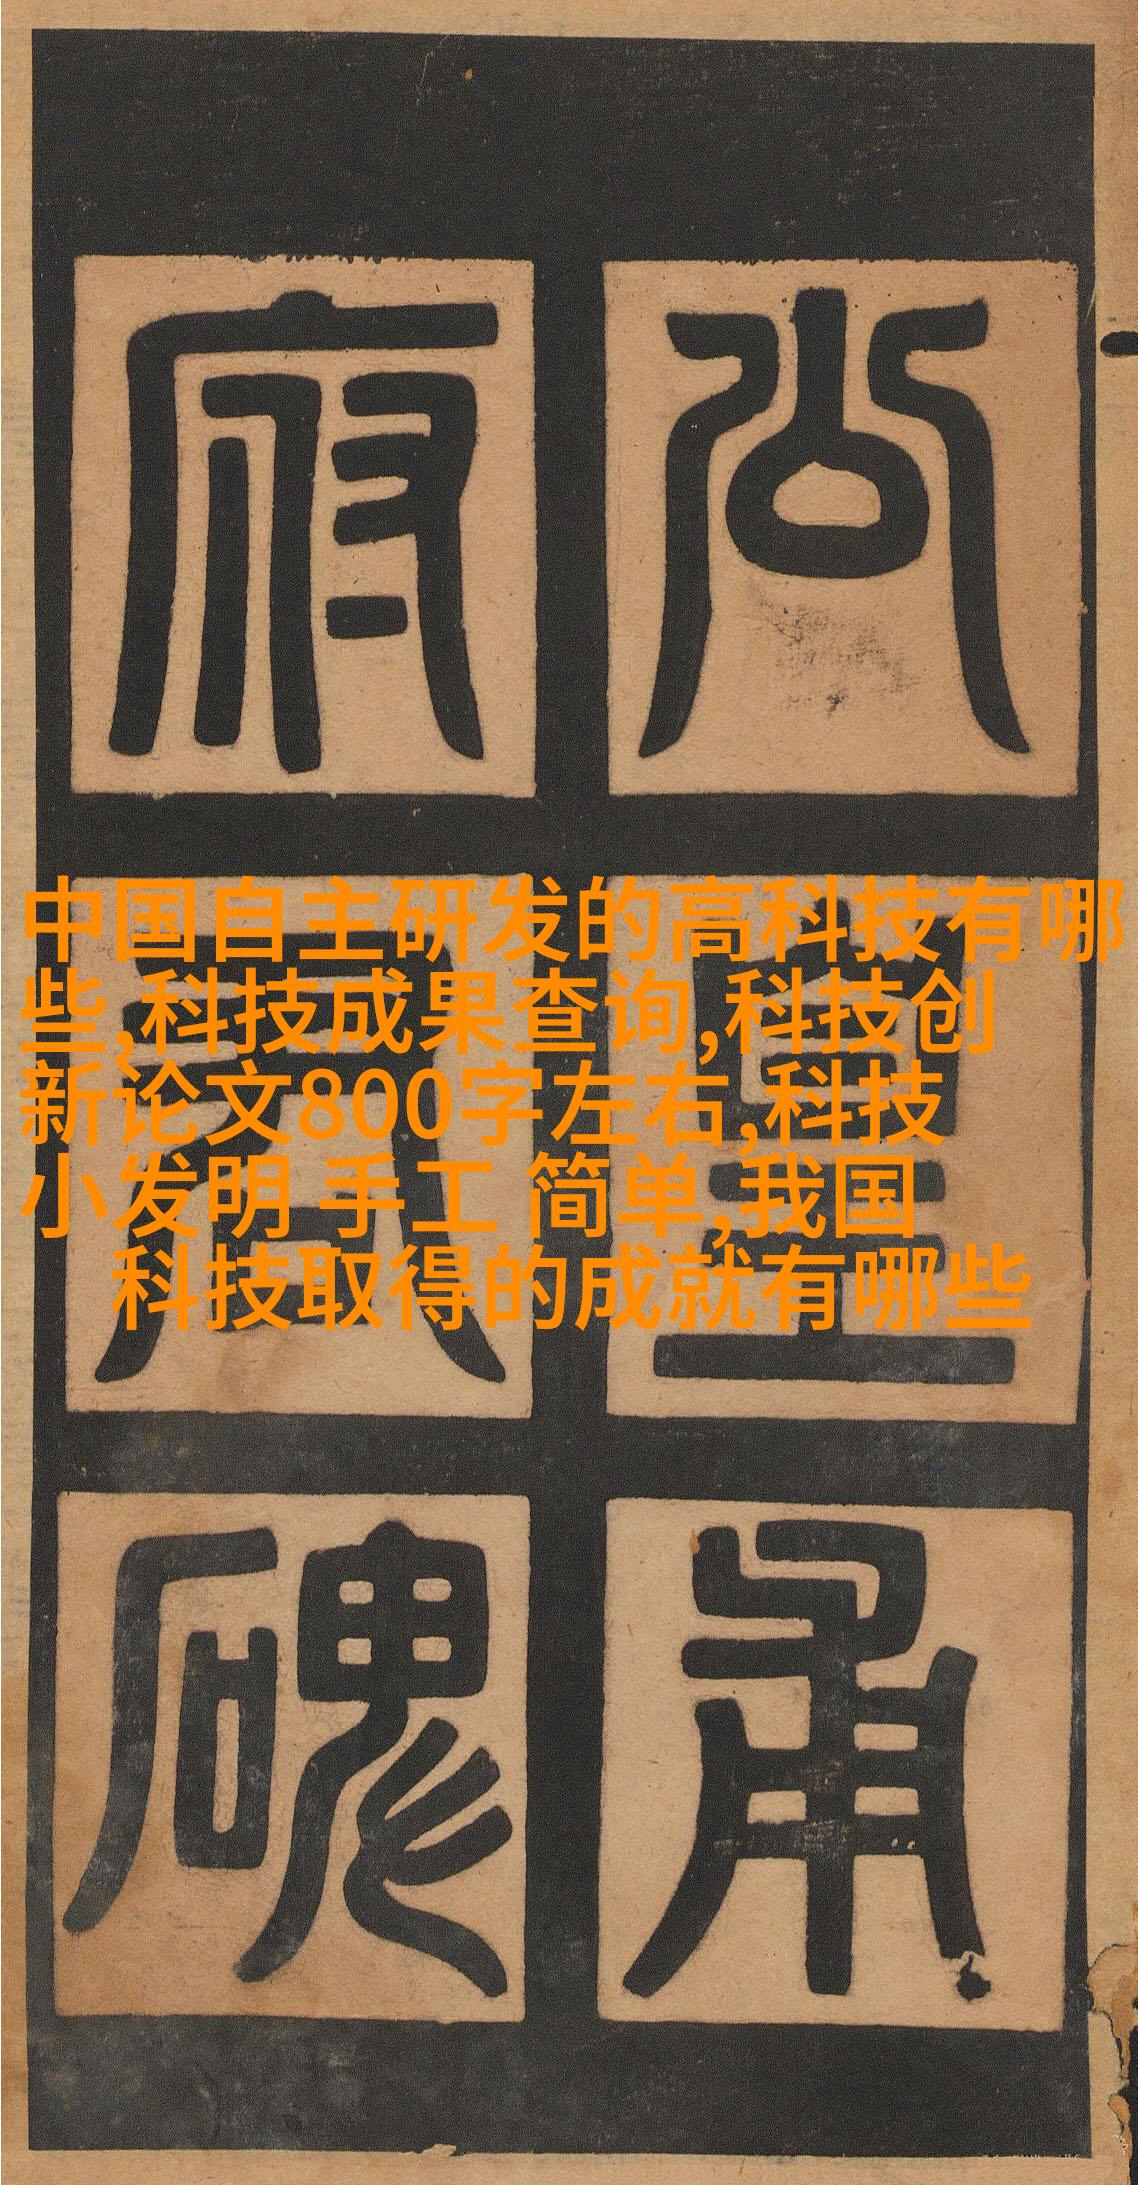 公皇甫
府君碑
中国自主研发的高科技有哪
些,科技成果查询,科技创
新论文800字左右,科技
小发明 手工 简单,我国
科技取得的成就有哪些